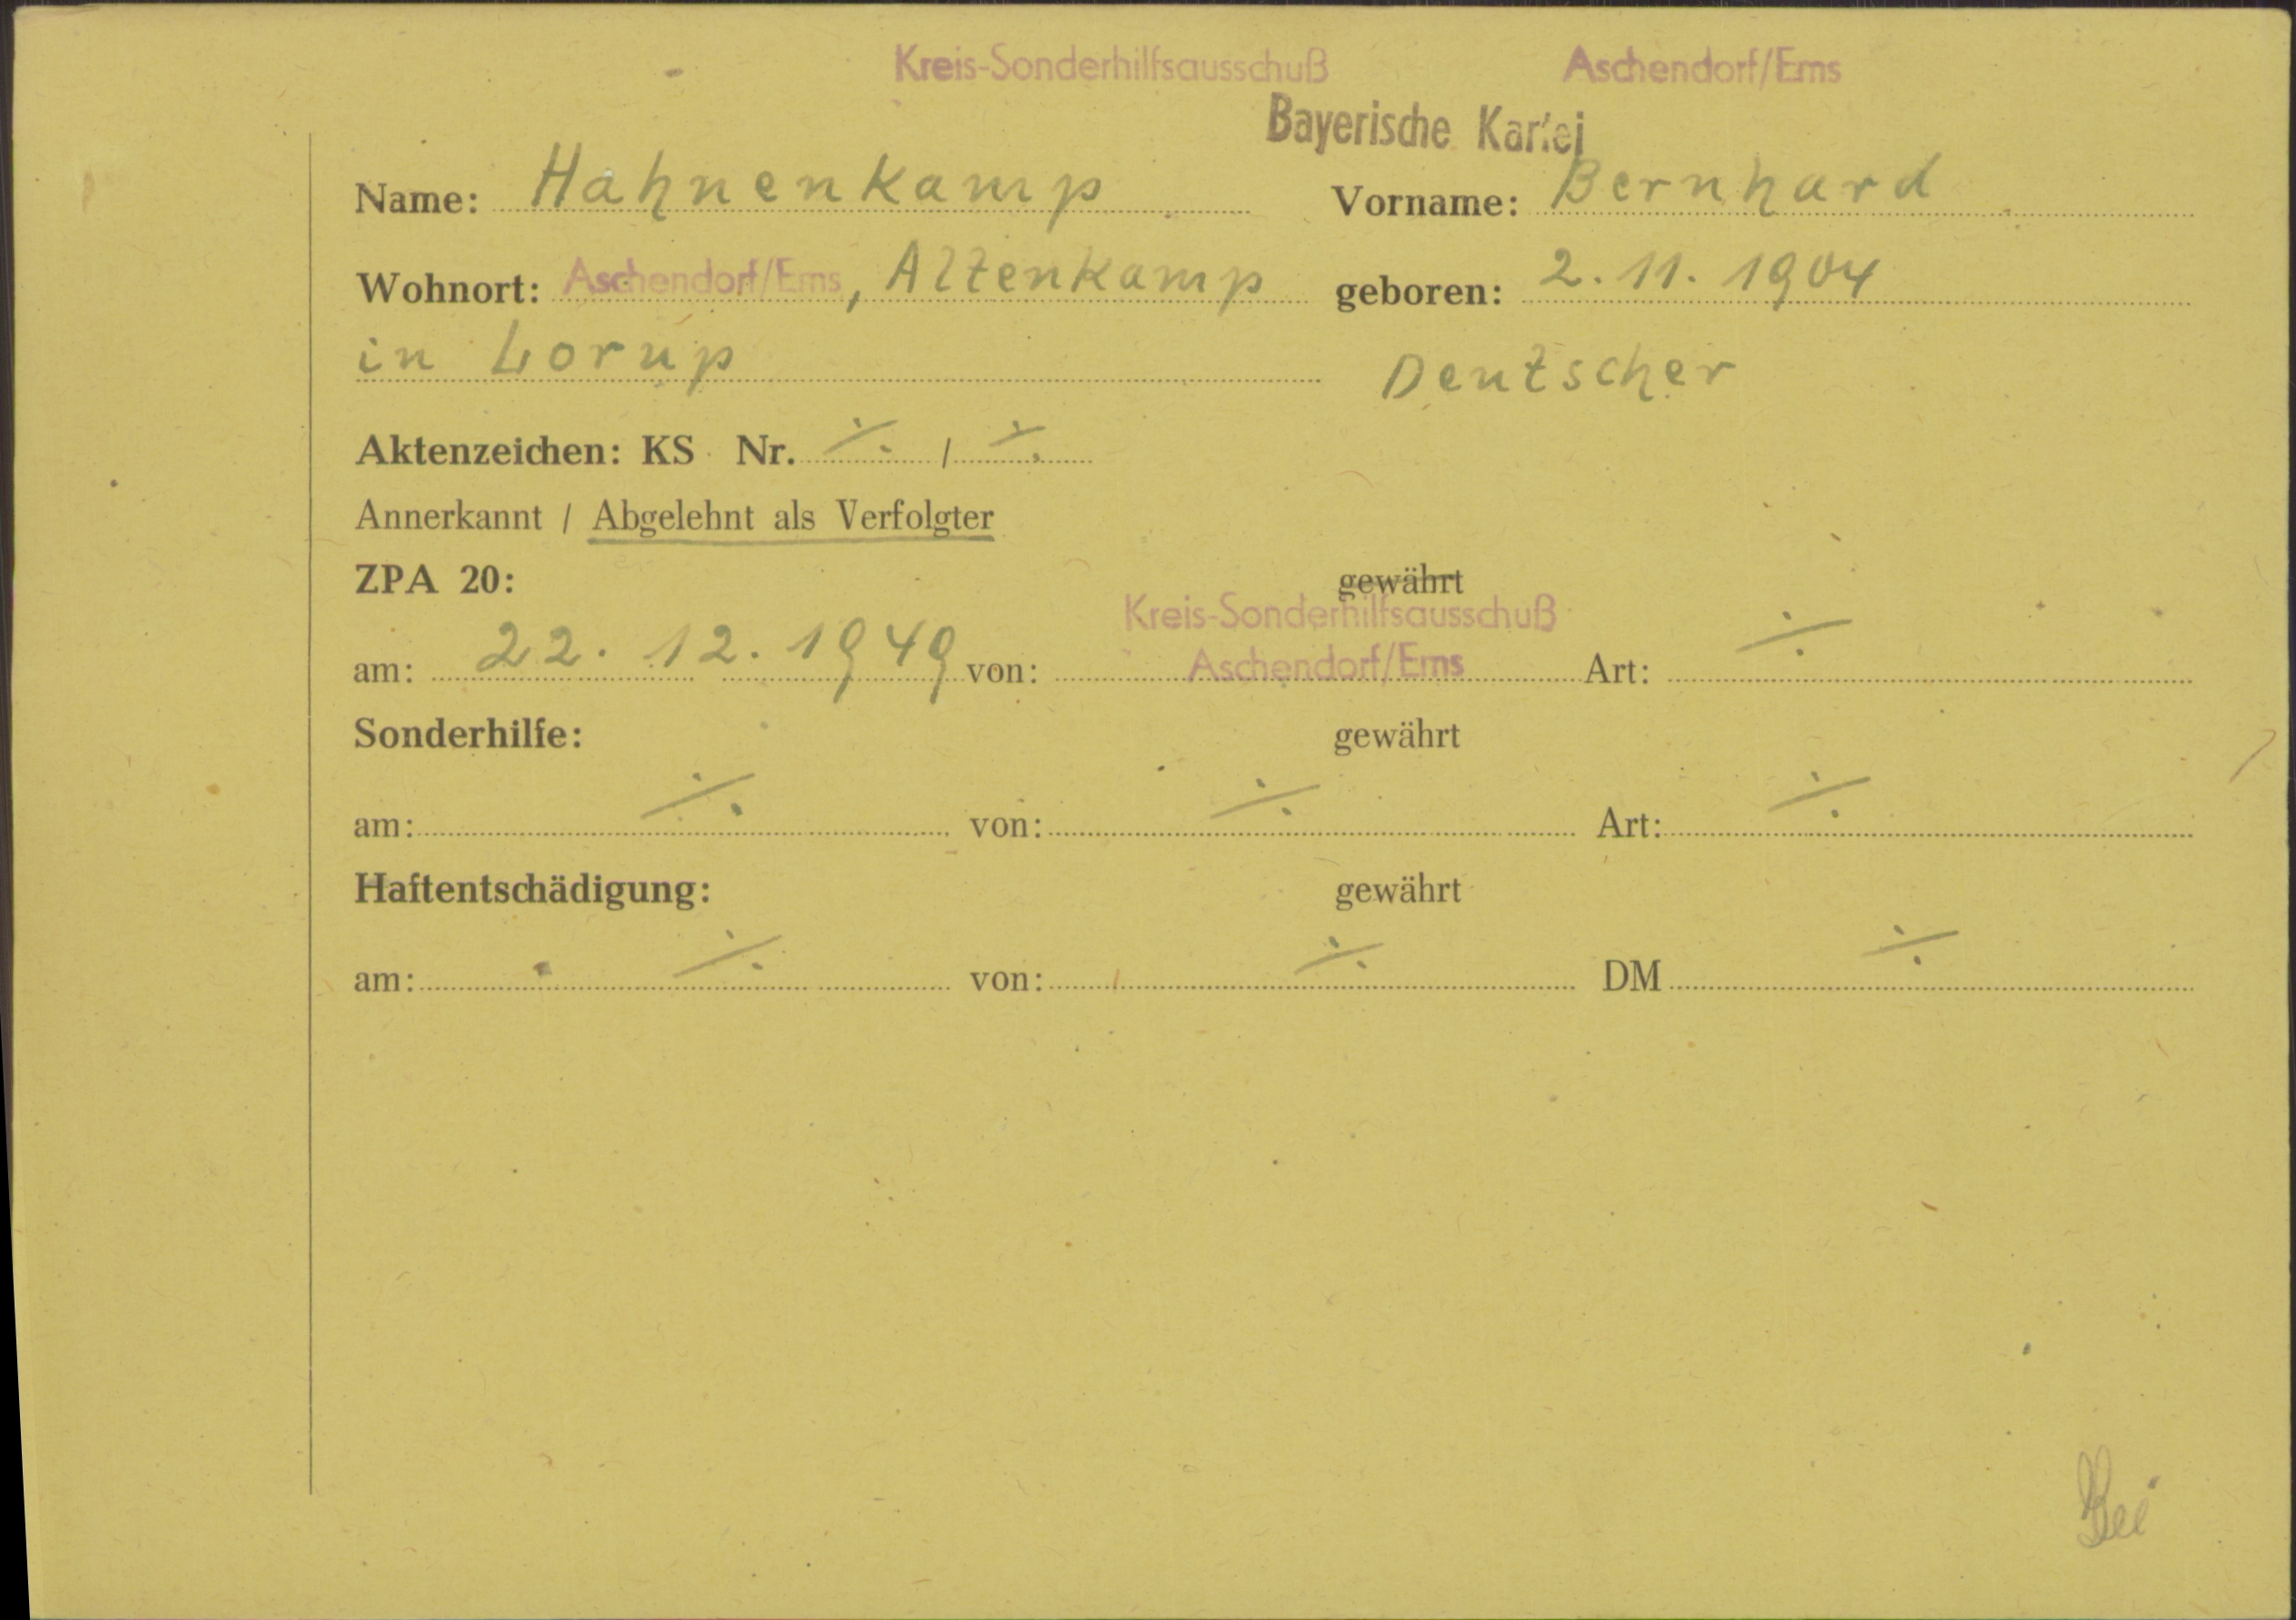 Kreis-Sonderhilfsausschuß Aschendorf/Ems
Bayerische Kartei
Name: Hahnenkamp Vorname: Bernhard
Wohnort: Aschendorf/Ems, Altenkamp geboren: 2.11.1904
in Lorup Deutscher
Aktenzeichen: KS Nr. ·/. / ·/.
Annerkannt / Abgelehnt als Verfolgter
ZPA 20: gewährt
Kreis-Sonderhilfsausschuß
am: 22.12.1949 von: Aschendorf/Ems Art: ·/.
Sonderhilfe: gewährt
am: ·/. von: ·/. Art: ·/.
Haftentschädigung: gewährt
am: ·/. von: ·/. DM ·/.